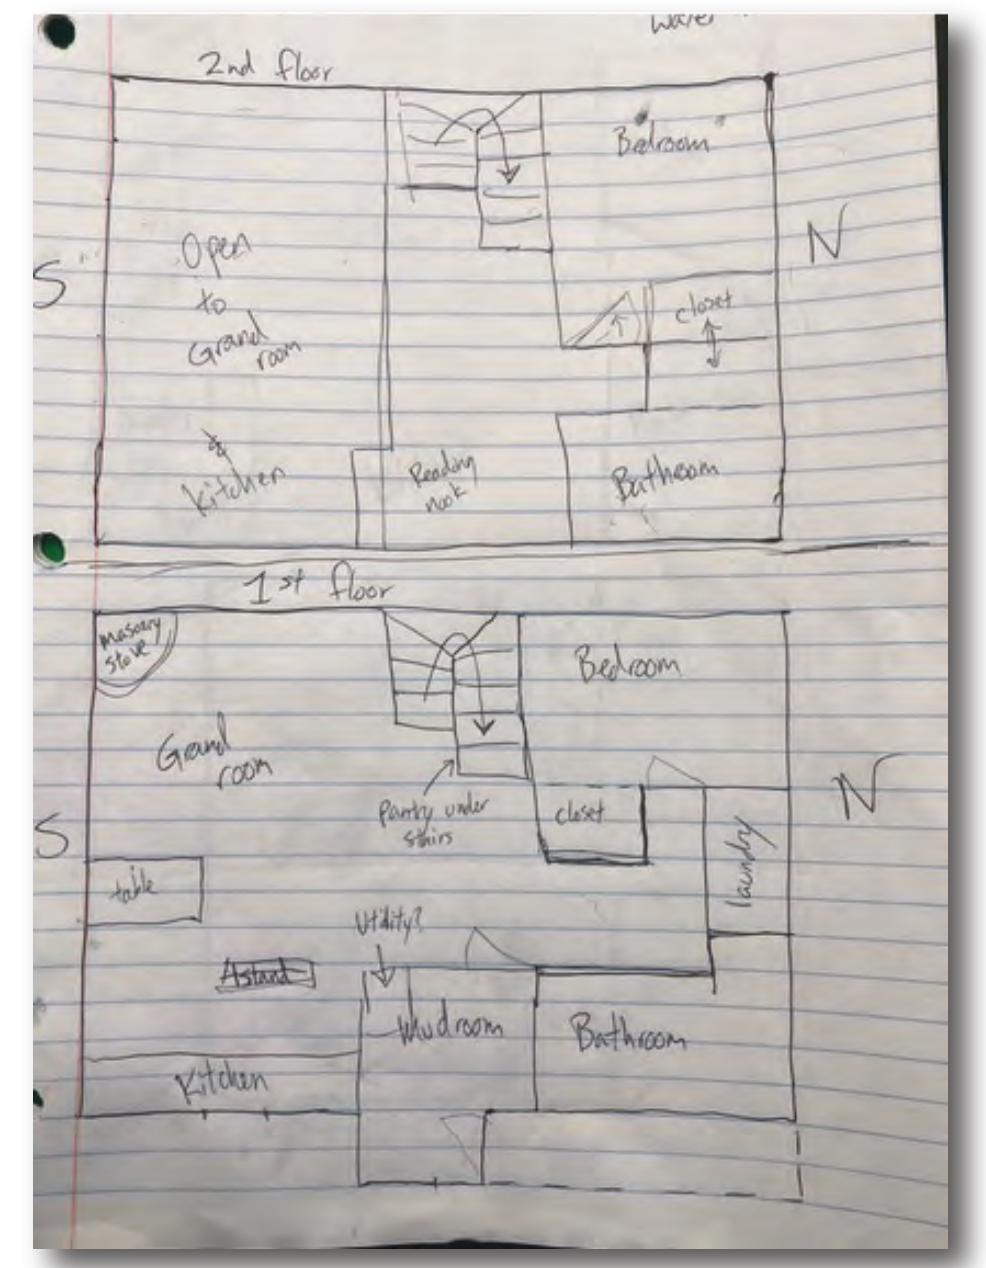 Water
2nd floor
Bedroom
N
Open
S
to
closet
Grand
room
&
Kitchen
Reading
nook
Bathroom
1st floor
masonry
stove
Bedroom
Grand
room
N
Pantry under
stairs
closet
S
laundry
table
Utility?
Island
Mudroom
Bathroom
Kitchen